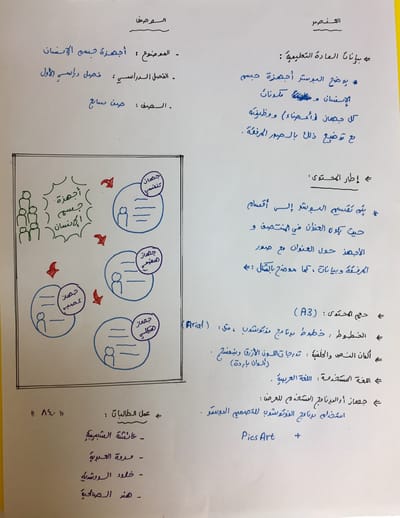 العنصر
الوصف
← بيانات المادة التعليمية :
- الموضوع : أجهزة جسم الإنسان
- الفصل الدراسي : فصل دراسي الأول
- الصف : صف سابع
* يوضح البوستر أجهزة جسم
الإنسان و مكونات
كل جهاز (أعضاء) ووظيفته
مع توضيح ذلك بالصور المرفقة .
← إطار المحتوى :
* يتم تقسيم البوستر إلى أقسام
حيث يكون العنوان في المنتصف و
الأجهزة حول العنوان مع صور
المرفقة وبيانات ، كما موضح بالشكل :←
أجهزة
جسم
الإنسان
جهاز
تنفسي
جهاز
هضمي
جهاز
عصبي
جهاز
عظمي
← حجم المحتوى : (A3)
← الخطوط : خطوط برنامج فوتوشوب ، مثل : (Arial)
← ألوان النص والخلفية : تدرجات اللون الأزرق وبنفسج .
(ألوان باردة)
← اللغة المستخدمة : اللغة العربية .
← جهاز أو البرنامج المستخدم للعرض :
استخدام برنامج الفوتوشوب لتصميم البوستر .
+ PicsArt
← عمل الطالبات :
- عائشة
- مروة
- خلود
- هند